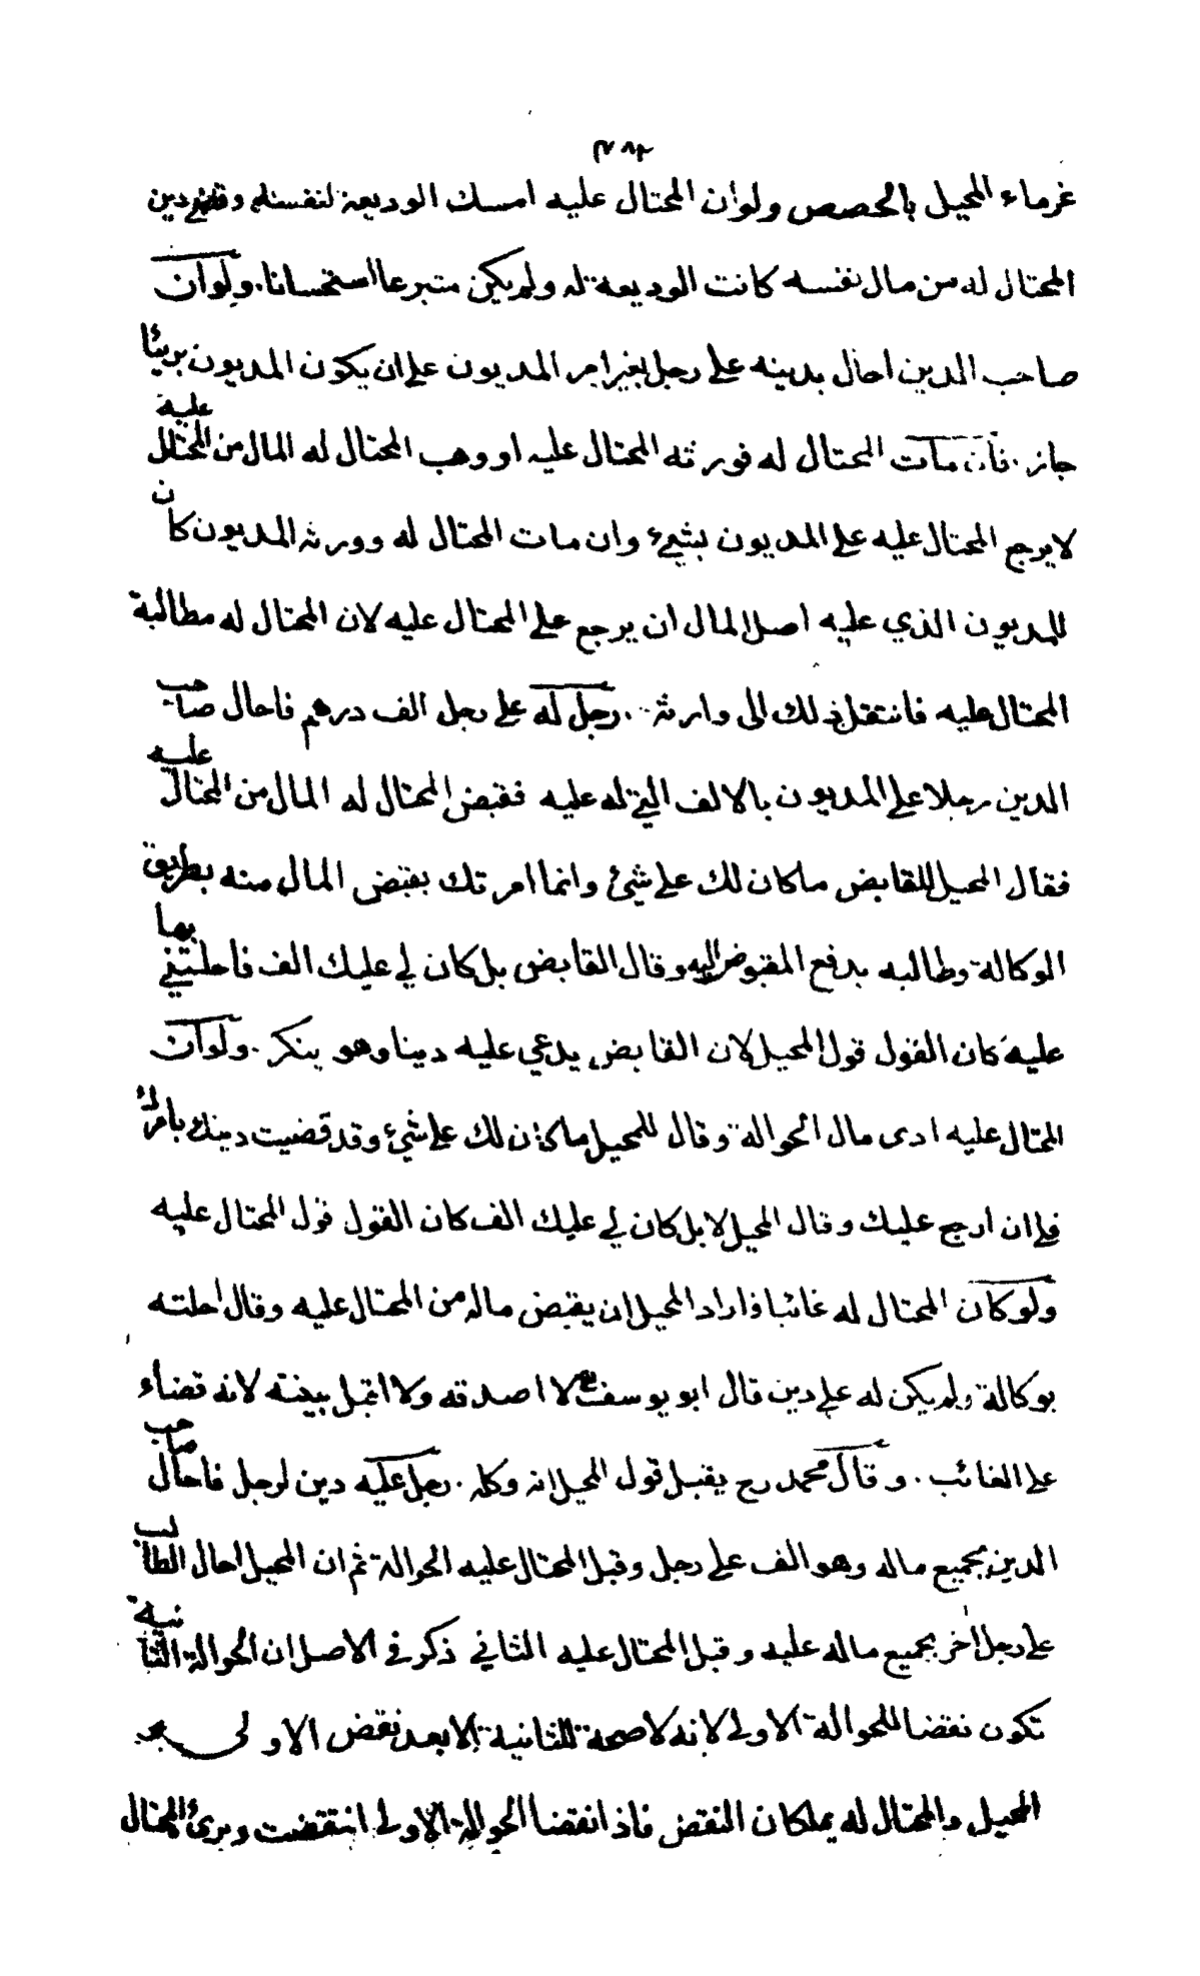 ٣٨٢
غرماء المحيل بالحصص ولوان المحتال عليه امسك الوديعة لنفسه وقضى دين
المحتال له من مال نفسه كانت الوديعة له ولم يكن متبرعا استحسانا. ولوان
صاحب الدين احال بدينه على رجل بغير امر المديون على ان يكون المديون بريئا
جاز. فان مات المحتال له فورثه المحتال عليه او وهب المحتال له المال من المحتال عليه
لايرجع المحتال عليه على المديون بشيء وان مات المحتال له وورثه المديون كان
للمديون الذي عليه اصل المال ان يرجع على المحتال عليه لان المحتال له مطالبة
المحتال عليه فانتقل ذلك الى وارثه. رجل له على رجل الف درهم فاحال صاحب
الدين رجلا على المديون بالالف التي له عليه فقبض المحتال له المال من المحتال عليه
فقال المحيل للقابض ماكان لك على شئ وانما امرتك بقبض المال منه بطريق
الوكالة وطالبه بدفع المقبوض اليه وقال القابض بل كان لي عليك الف فاحلتني بها
عليه كان القول قول المحيل لان القابض يدعي عليه دينا وهو ينكر. ولوان
المحتال عليه ادى مال الحوالة وقال للمحيل ماكان لك على شئ وقد قضيت دينك بامرك
فلي ان ارجع عليك وقال المحيل لا بل كان لي عليك الف كان القول قول المحتال عليه
ولوكان المحتال له غائبا فاراد المحيل ان يقبض ماله من المحتال عليه وقال احلته
بوكالة ولم يكن له علي دين قال ابو يوسف رح لا اصدقه ولا اقبل بينته لانه قضاء
على الغائب. وقال محمد رح يقبل قول المحيل انه وكله. رجل عليه دين لرجل فاحال صاحب
الدين بجميع ماله وهو الف على رجل وقبل المحتال عليه الحوالة ثم ان المحيل احال الطالب
على رجل اخر بجميع ماله عليه وقبل المحتال عليه الثاني ذكر في الاصل ان الحوالة الثانية
تكون نقضا للحوالة الاولى لانه لا صحة للثانية الا بعد نقض الاولى
المحيل والمحتال له يملكان النقض فاذ انقضا الحوالة الاولى انتقضت وبرئ المحتال